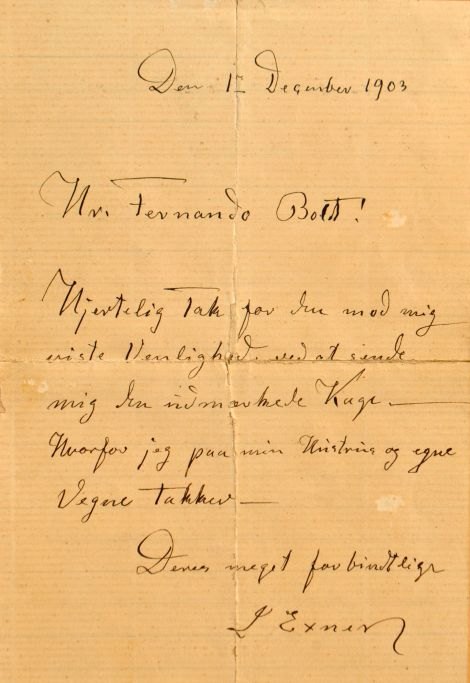 Den 1ste December 1903
Hr. Fernando Boldt!
Hjertelig Tak for den mod mig
viste Venlighed ved at sende
mig den udmærkede Kage —
Hvorfor jeg paa min Hustrus og egne
Vegne takker —
Deres meget forbindtlige
J Exner